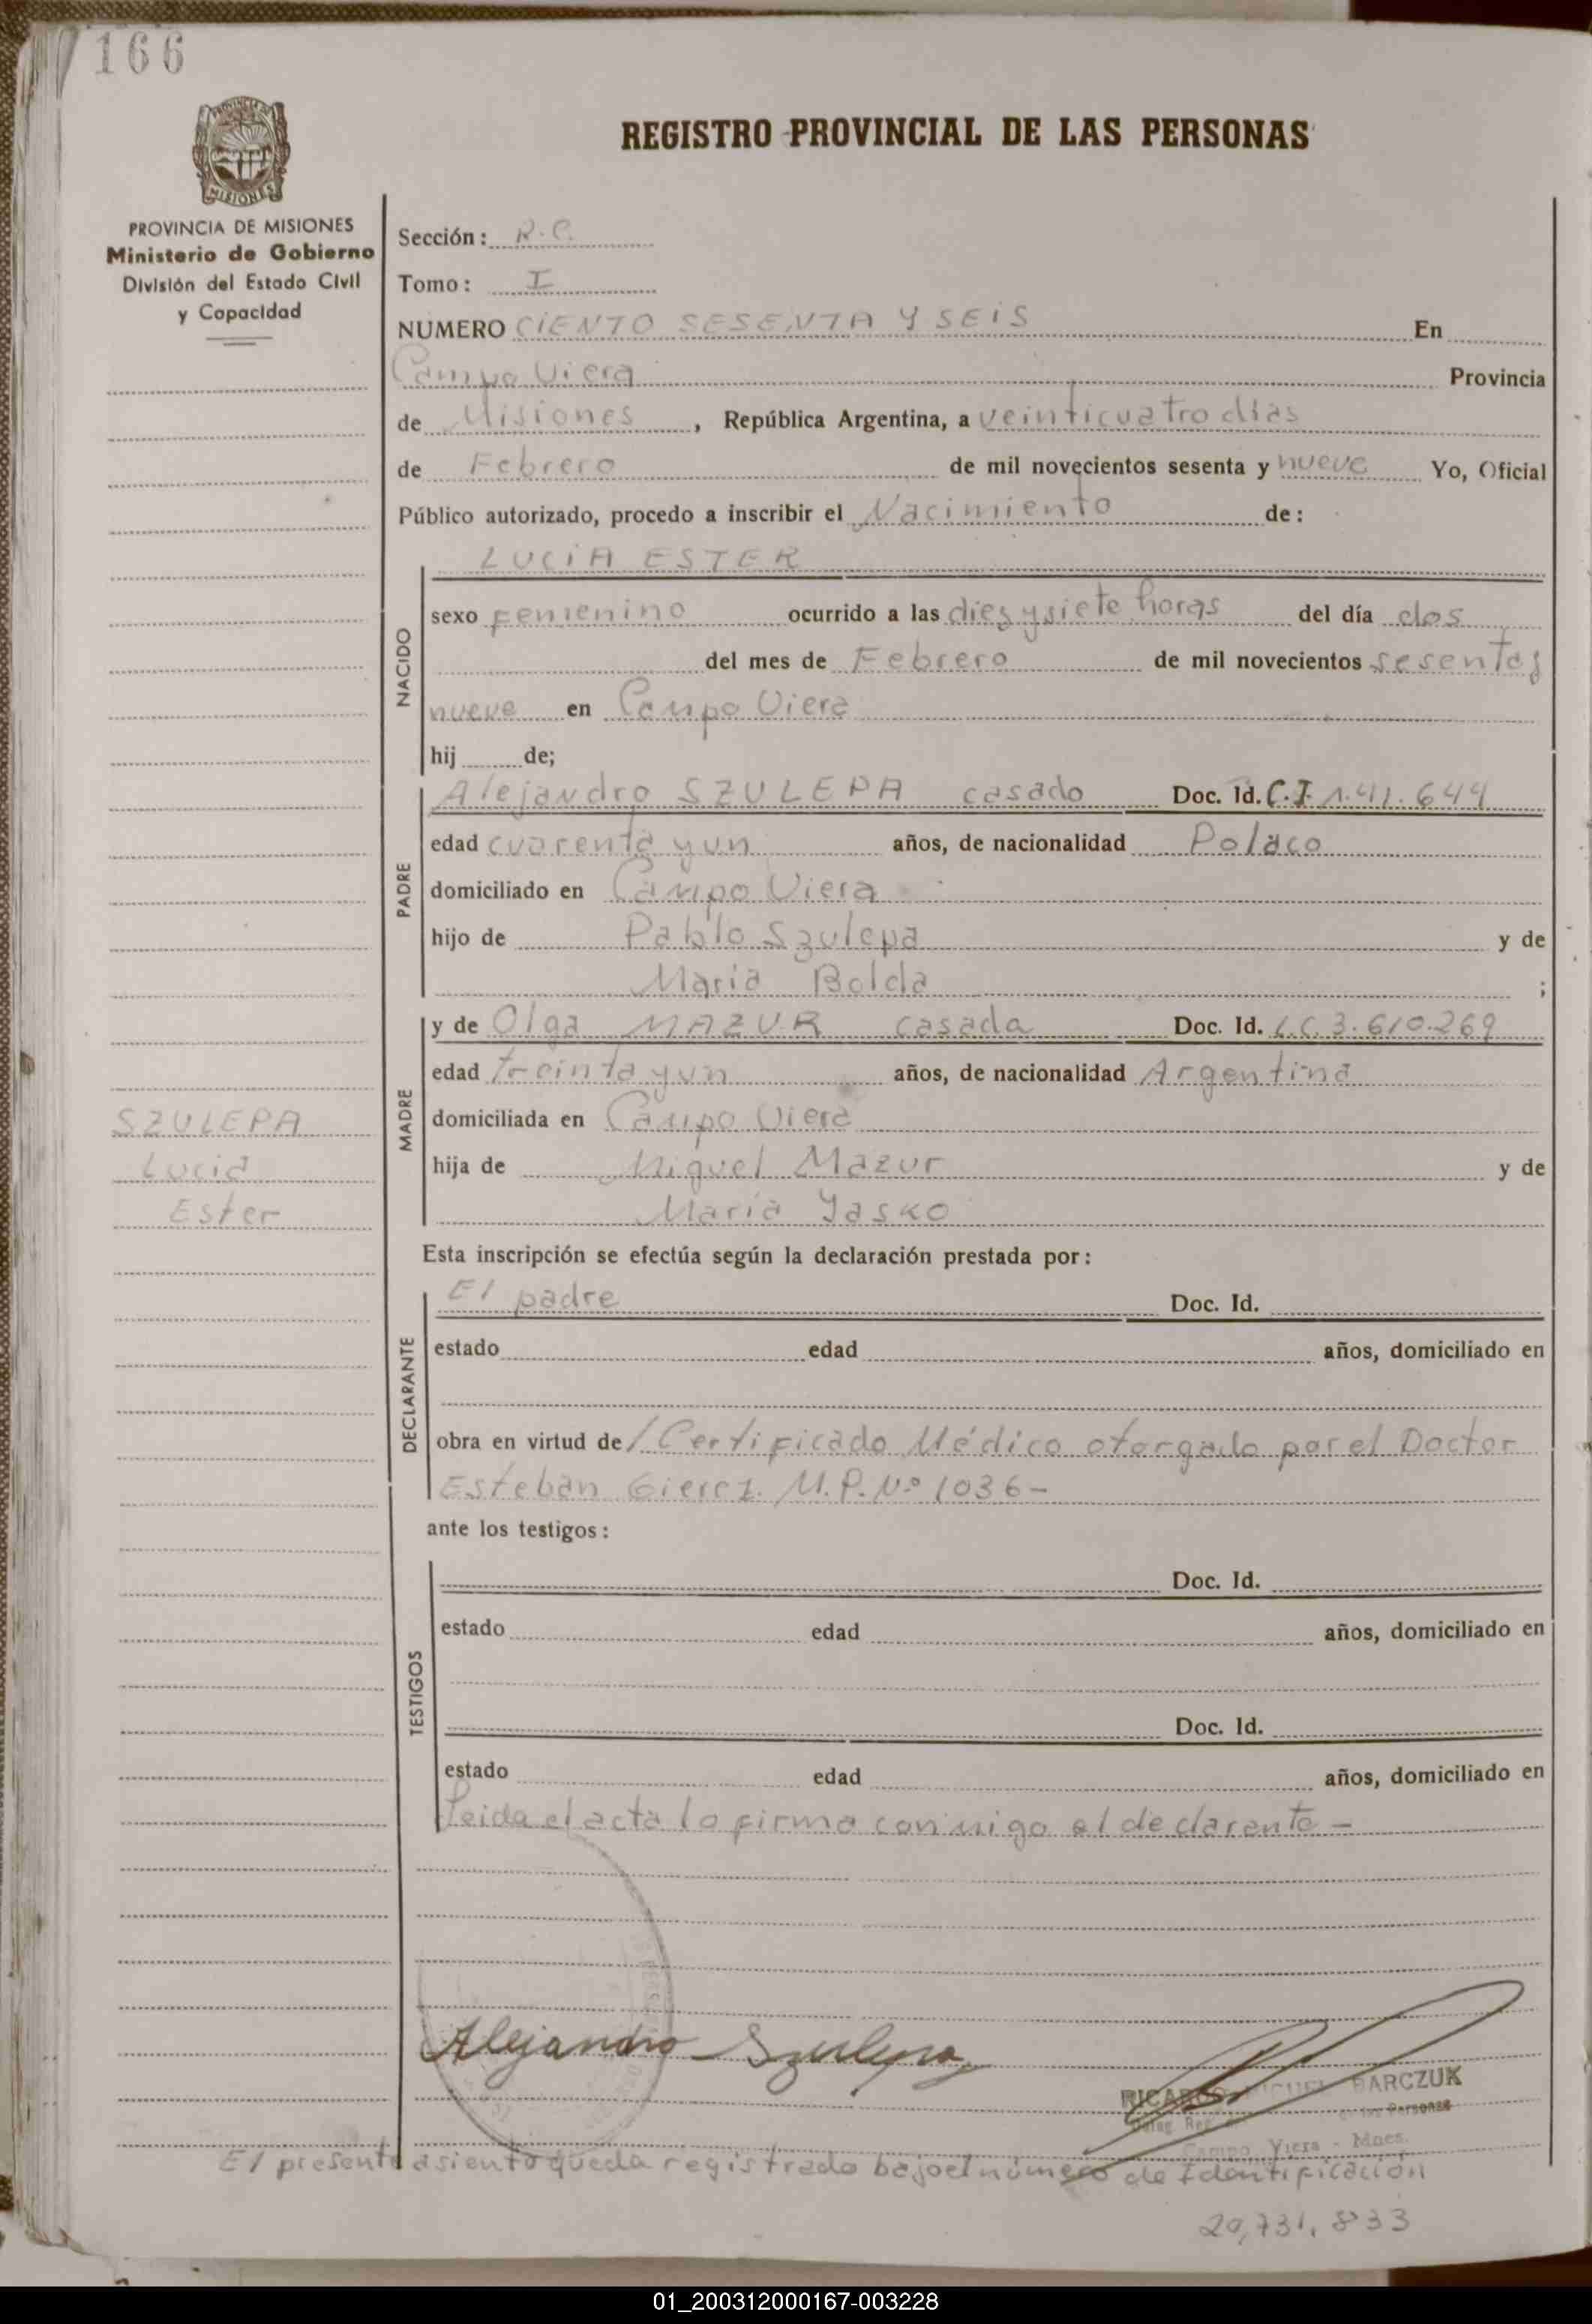 166
PROVINCIA DE
MISIONES
REGISTRO PROVINCIAL DE LAS PERSONAS
PROVINCIA DE MISIONES
Ministerio de Gobierno
División del Estado Civil
y Capacidad
Sección: R.C.
Tomo: I
NUMERO CIENTO SESENTA Y SEIS En
Campo Viera Provincia
de Misiones, República Argentina, a veinticuatro días
de Febrero de mil novecientos sesenta y nueve Yo, Oficial
Público autorizado, procedo a inscribir el Nacimiento de:
NACIDO
LUCIA ESTER
sexo femenino ocurrido a las diez y siete horas del día dos
del mes de Febrero de mil novecientos sesenta y
nueve en Campo Viera
hij de;
PADRE
Alejandro SZULEPA casado Doc. Id. C.I. 1.41.644
edad cuarenta y un años, de nacionalidad Polaco
domiciliado en Campo Viera
hijo de Pablo Szulepa y de
Maria Bolda ;
MADRE
y de Olga MAZUR casada Doc. Id. L.C. 3.610.269
edad treinta y un años, de nacionalidad Argentina
domiciliada en Campo Viera
hija de Miguel Mazur y de
Maria Yasko
SZULEPA
Lucia
Ester
Esta inscripción se efectúa según la declaración prestada por:
DECLARANTE
El padre Doc. Id.
estado edad años, domiciliado en
obra en virtud de / Certificado Médico otorgado por el Doctor
Esteban M.P. Nº 1036-
ante los testigos:
TESTIGOS
Doc. Id.
estado edad años, domiciliado en
Doc. Id.
estado edad años, domiciliado en
Leida el acta lo firma conmigo el declarante -
Alejandro Szulepa
RICARDO MIGUEL BARCZUK
de las Personas
Campo Viera - Mnes.
El presente asiento queda registrado bajo el número de Identificación
20,731,833
01_200312000167-003228